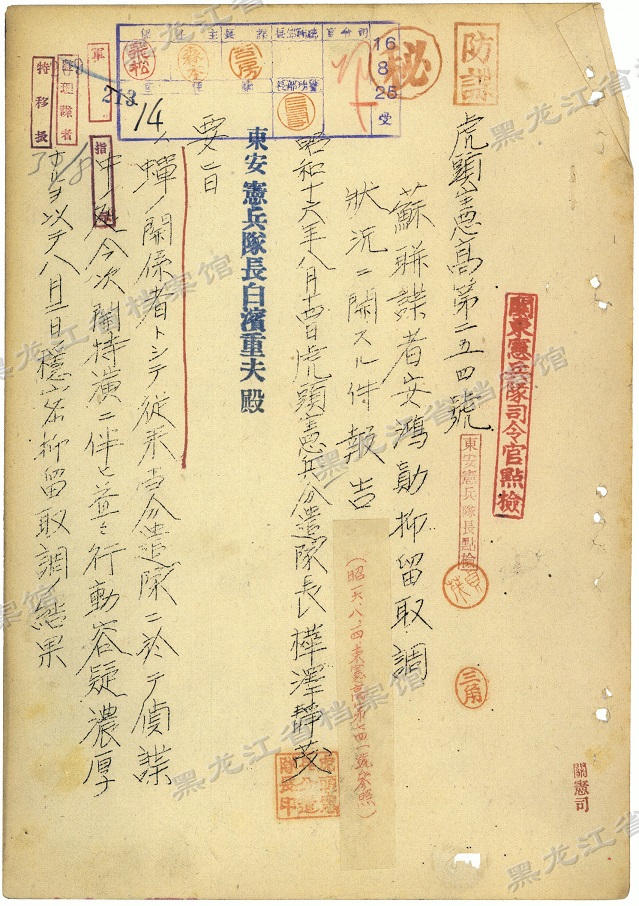 防諜
秘
16
8
25
受
軍
特移扱
213
14
關東憲兵隊司令官點檢
東安憲兵隊長點檢
三角
關憲司
虎頭憲高第二五四號
蘇聯諜者安鴻勛抑留取調
狀況ニ關スル件報告
(昭一六、八、二四東憲高第七四一號參照)
昭和十六年八月十四日虎頭憲兵分遣隊長樺澤靜茂
東安憲兵隊長白濱重夫殿
要旨
蟬ノ關係者トシテ從來當分遣隊ニ於テ偵諜
中ノ處今次關特演ニ伴ヒ益々行動容疑濃厚
ヲ以テ八月一日穩密抑留取調結果
黑龙江省档案馆